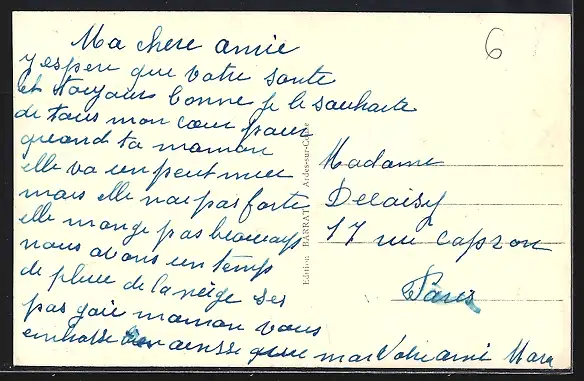 6
Ma chere amie
y espere que votre sante
et toujour bonne je le souhaite
de tous mon cœur pour
quand ta maman
elle va un peut mieu
mais elle nai pas forte
elle mange pas beaucoup
nous avons un temps
de pluie de la neige ses
pas gaie maman vous
embrasse ainsse que moi Votre amie Mara
Edition BARRAT Ardes-sur-Couze
Madame
Delaisy
17 rue Capron
Paris